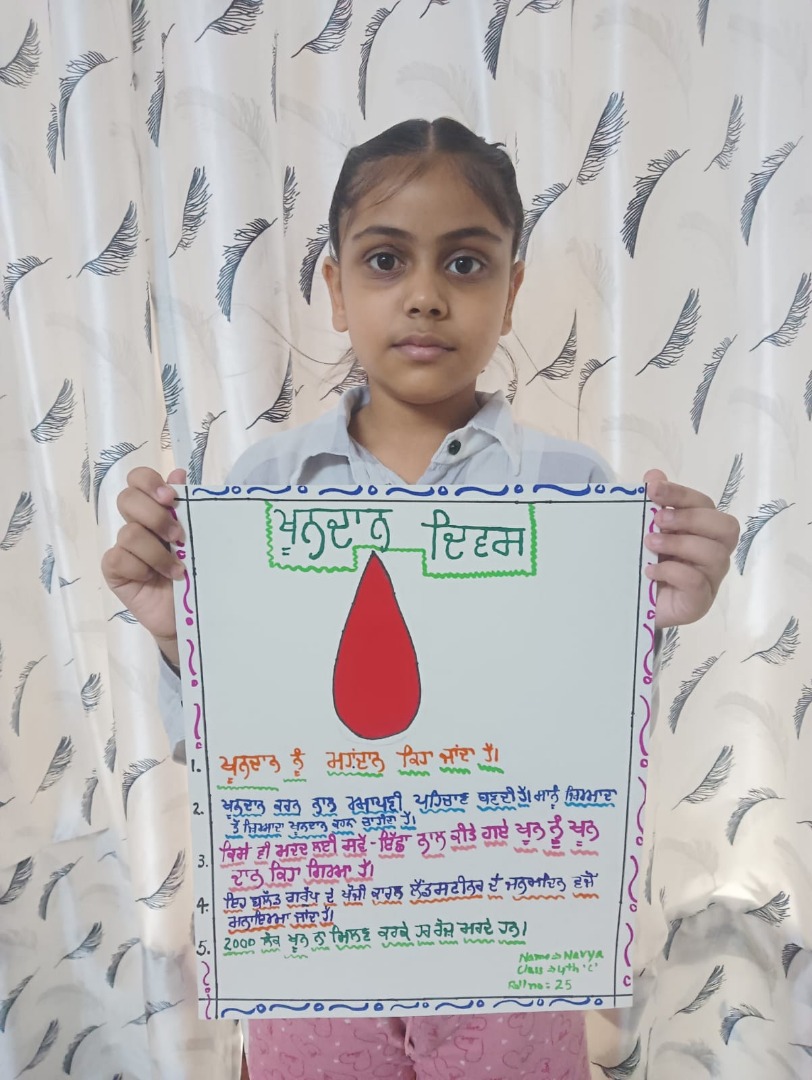 ਖੂਨਦਾਨ ਦਿਵਸ
1. ਖੂਨਦਾਨ ਨੂੰ ਮਹਾਂਦਾਨ ਕਿਹਾ ਜਾਂਦਾ ਹੈ।
2. ਖੂਨਦਾਨ ਕਰਨ ਨਾਲ ਪਹਿਚਾਣ ਬਣਦੀ ਹੈ। ਸਾਨੂੰ ਜ਼ਿਆਦਾ
ਤੋਂ ਜ਼ਿਆਦਾ ਖੂਨਦਾਨ ਕਰਨਾ ਚਾਹੀਦਾ ਹੈ।
3. ਕਿਸੇ ਦੀ ਮਦਦ ਲਈ ਸਵੈ-ਇੱਛਾ ਨਾਲ ਕੀਤੇ ਗਏ ਖੂਨ ਨੂੰ ਖੂਨ
ਦਾਨ ਕਿਹਾ ਗਿਆ ਹੈ।
4. ਇਹ ਬਲੱਡ ਗਰੁੱਪ ਦੇ ਕਾਰਲ ਲੈਂਡਸਟੀਨਰ ਦੇ ਜਨਮਦਿਨ ਵਜੋਂ
ਮਨਾਇਆ ਜਾਂਦਾ ਹੈ।
5. 2000 ਲੋਕ ਖੂਨ ਨਾ ਮਿਲਣ ਕਰਕੇ ਹਰ ਰੋਜ਼ ਮਰਦੇ ਹਨ।
Name → Navya
Class → 4th 'C'
Roll no: 25